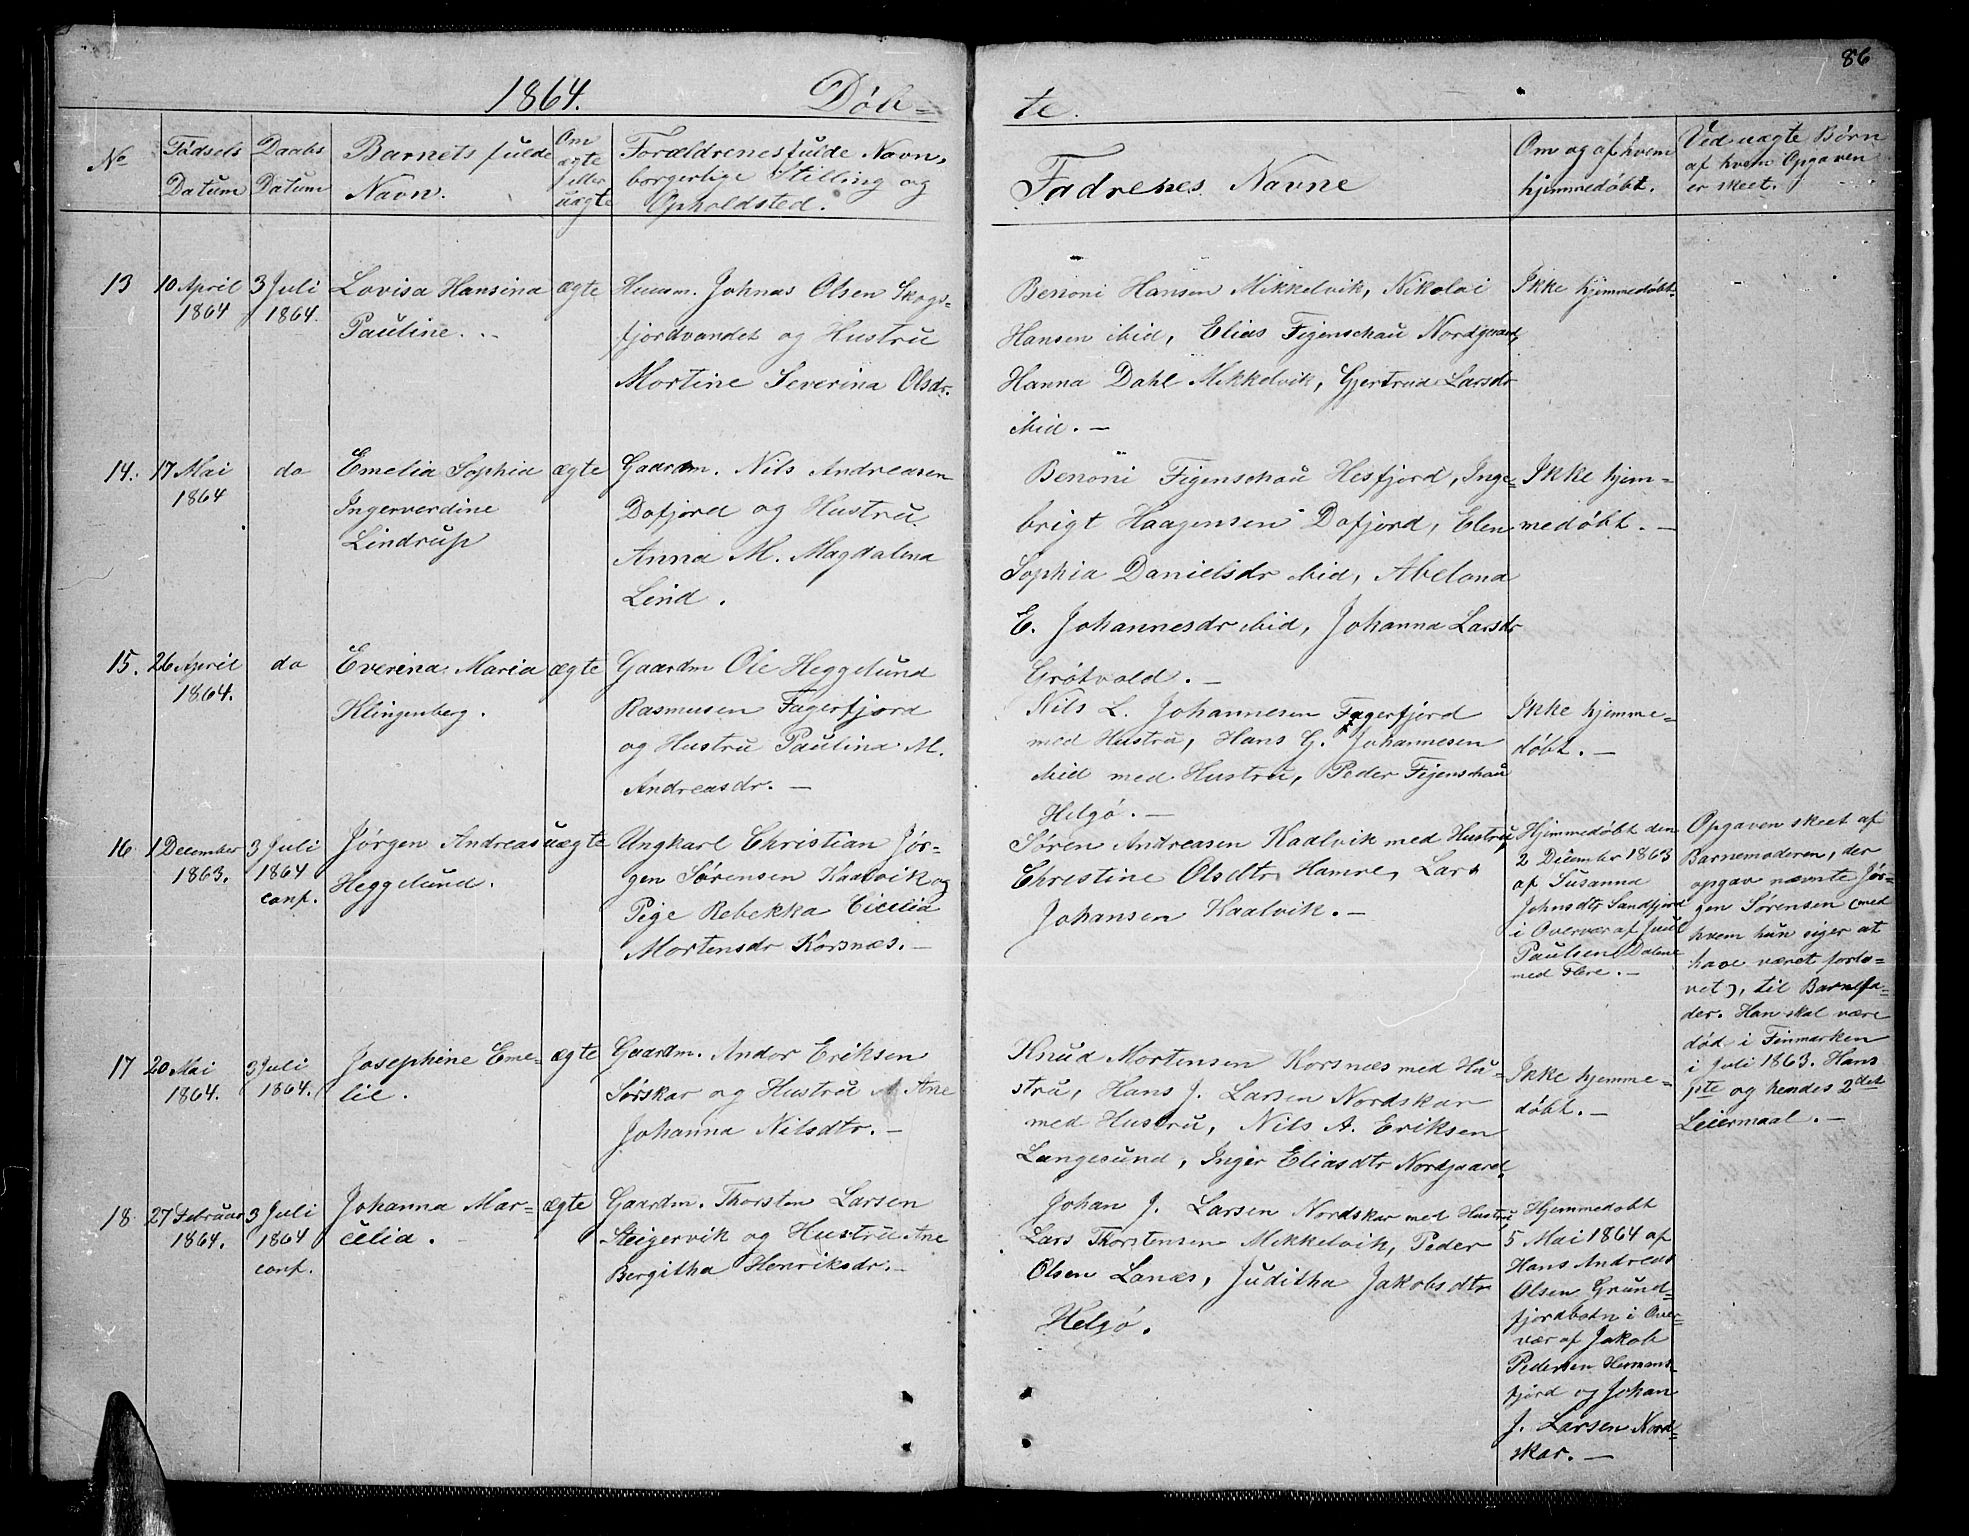 86
1864. Døb=
te.
No
Fødsels
Datum
Daabs
Datum
Barnets fulde
Navn.
Om
ægte
eller
uægte
Forældrenes fulde Navn,
borgerlige Stilling og
Opholdsted.
Fadrenes Navne
Om og af hvem
hjemmedøbt.
Ved uægte Børn
af hvem Opgaven
er skeet.
13
10 April
1864
3 Juli
1864.
Lovisa Hansina
Pauline.
ægte
Huusm. Johnas Olsen Skogs-
fjordvandet og Hustru
Mortine Severina Olsdr.
Benoni Hansen Mikkelvik, Nikolai
Hansen ibid, Elias Figenschau Nordgaard,
Hanna Dahl Mikkelvik, Gjertrud Larsdr
ibid. —
Ikke hjemmedøbt.
14.
17 Mai
1864
do
Emelia Sophia
Ingerverdine
Lindrup
ægte
Gaardm. Nils Andreasen
Dafjord og Hustru
Anna M. Magdalena
Lind.
Benoni Figenschau Hesfjord, Inge=
brigt Haagensen Dafjord, Elen
Sophia Danielsdr ibid, Abelona
E. Johannesdr ibid, Johanna Larsdr
Grøtvold. —
Ikke hjem=
medøbt. —
15.
26 April
1864.
do
Everina Maria
Klingenberg.
ægte
Gaardm Ole Heggelund
Rasmusen Fagerfjord
og Hustru Paulina M.
Andreasdr. —
Nils L. Johannesen Fagerfjord
med Hustru, Hans G. Johannesen
ibid med Hustru, Peder Figenschau
Helgø. —
Ikke hjemme=
døbt. —
16
1 December
1863.
3 Juli
1864
conf.
Jørgen Andreas
Heggelund.
uægte
Ungkarl Christian Jør-
gen Sørensen Kaalvik og
Pige Rebekka Cicilia
Mortensdr Korsnæs. —
Søren Andreasen Kaalvik med Hustru,
Christine Olsdtr Hamre, Lars
Johansen Kaalvik. —
Hjemmedøbt den
2 December 1863
af Susanna
Johnsdtr Sandfjord
i Overvær af Juul
Paulsen Dalene
med Flere. —
Opgaven skeet af
Barnemoderen, der
opgav nævnte Jør-
gen Sørensen (med
hvem hun siger at
have været forlo=
vet), til Barnefa=
der. Han skal være
død i Finmarken
i Juli 1863. Hans
1ste og hendes 2det
Leiermaal. —
17
20 Mai
1864.
3 Juli
1864.
Josephine Eme-
lie.
ægte
Gaardm. Andor Eriksen
Sørskar og Hustru A. Ane
Johanna Nilsdtr. —
Knud Mortensen Korsnæs med Hu=
stru, Hans J. Larsen Nordskar
med Hustru, Nils A. Eriksen
Langesund, Inger Eliasdtr Nordgaard.
Ikke hjemme=
døbt. —
18
27 Februar
1864.
3 Juli
1864
conf.
Johanna Mar-
celia.
ægte
Gaardm. Thorsten Larsen
Steigervik og Hustru Ane
Bergitha Henriksdr. —
Johan J. Larsen Nordskar med Hustru
Lars Thorstensen Mikkelvik, Peder
Olsen Lanæs, Juditha Jakobsdtr
Helgø.
Hjemmedøbt
5 Mai 1864 af
Hans Andreas
Olsen Grund=
fjordbotn i Over=
vær af Jakob
Pedersen Hermans-
fjord og Johan
J. Larsen Nord=
skar. —